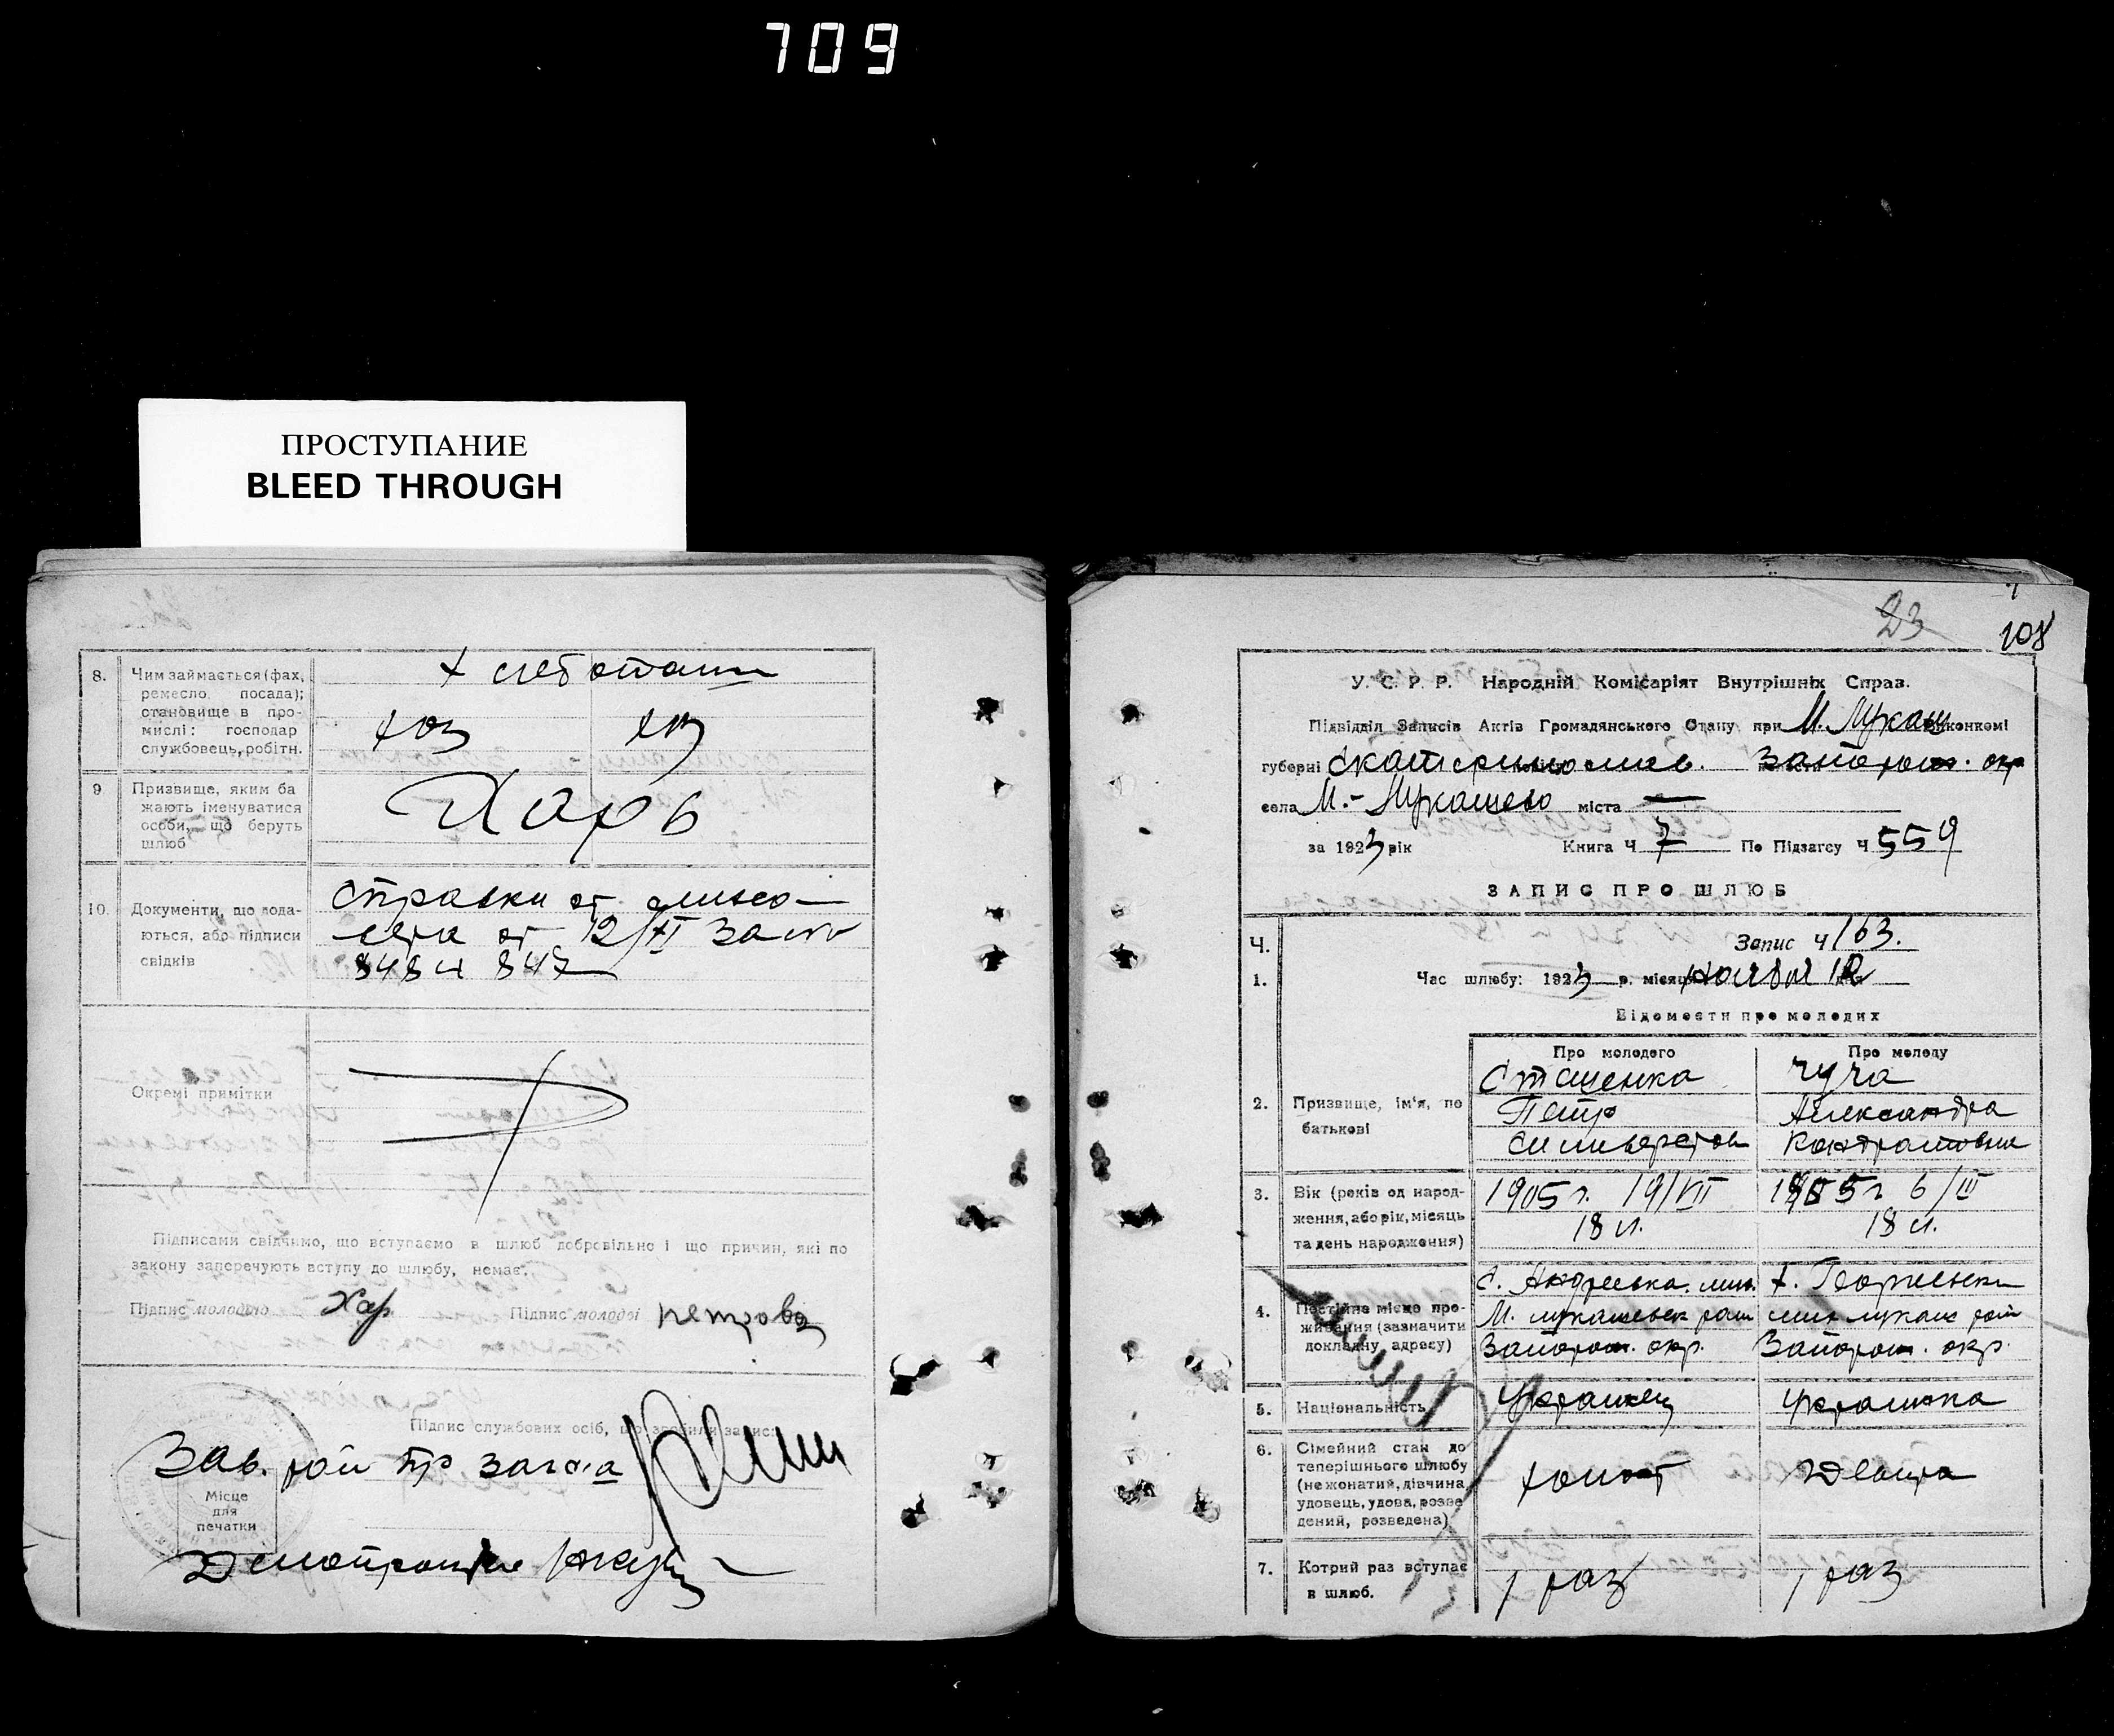 709
ПРОСТУПАНИЕ
BLEED THROUGH
8.
Чим займається (фах,
ремесло, посада);
становище в про-
мислі: господар
службовець, робітн.
хлебопашец
хоз
хоз
9
Призвище, яким ба
жають іменуватися
особи, що беруть
шлюб
Харь
10.
Документи, що пода-
ються, або підписи
свідків
справки от
от 12/XI за
848 и 847
Окремі примітки
Підписами свідчимо, що вступаємо в шлюб добровільно і що причин, які по
закону заперечують вступу до шлюбу, немає.
Підпис молодого Хар
Підпис молодої петрова
Підпис службових осіб, що зробили запис:
Зав. загса
Місце
для
печатки
23
108
У. С. Р. Р. Народній Комісаріят Внутрішніх Справ.
Підвідділ Записів Актів Громадянського Стану при М. Лукаш виконкомі
губерні Екатеринослав. Запорож. окр
села М.-Лукашево міста —
за 1923 рік Книга Ч 7 По Підзагсу Ч 559
ЗАПИС ПРО ШЛЮБ
Ч.
Запис Ч 163.
1.
Час шлюбу: 1923 р. місяць ноября 12
Відомости про молодих
Про молодого
Про молоду
2.
Призвище, ім'я, по
батькові
Сташенко
Петр
Сильверстов
Чуча
Александра
Кондратовна
3.
Вік (років од народ-
ження, або рік, місяць
та день народження)
1905 г. 19/VII
18 л.
1905 г 6/III
18 л.
4.
Постійне місце про-
живання (зазначити
докладну адресу)
с. Андреевка.
М. лукашевск рай
Запорож. окр.
х.
лукаш рай
Запорож. окр.
5.
Національність
Украинец
Украинка
6.
Сімейний стан до
теперішнього шлюбу
(нежонатий, дівчина
удовець, удова, розве
дений, розведена)
холост
Девица
7.
Котрий раз вступає
в шлюб.
1 раз
1 раз